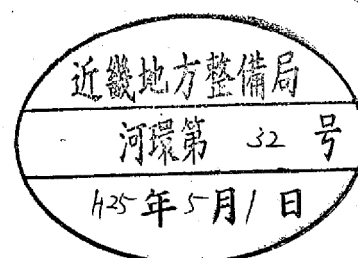 近畿地方整備局
河環第 32 号
H25年5月1日